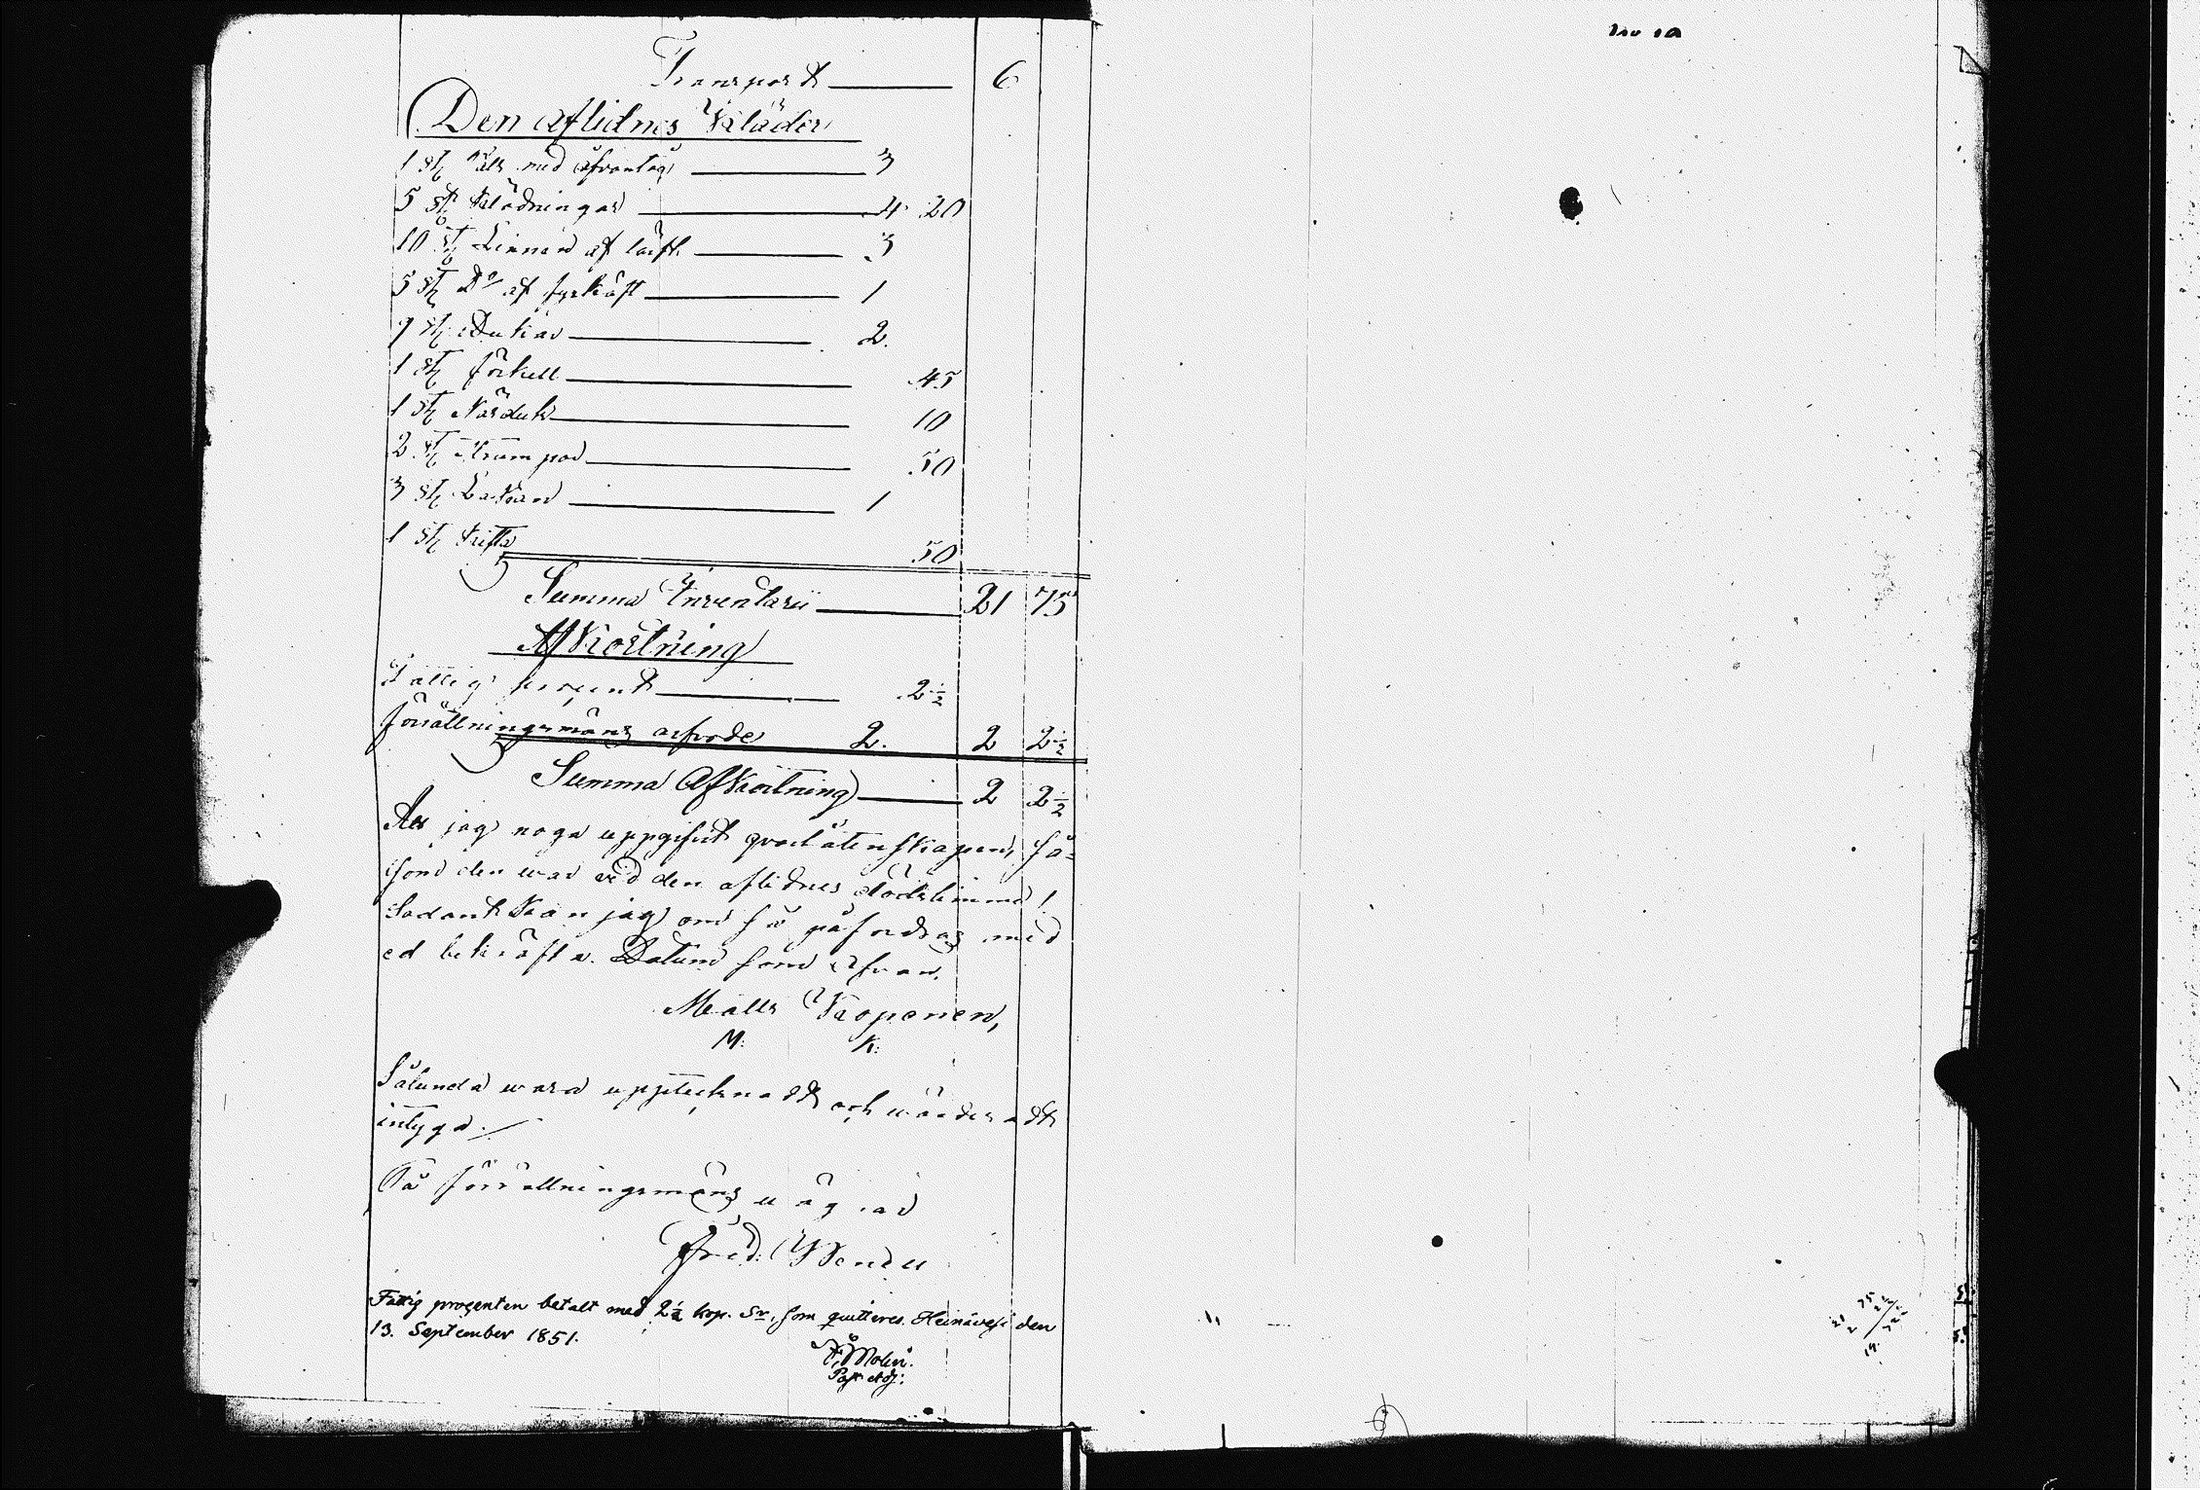 Transport 6
Den aflidnes Kläder
1 st Päls med öfvantåg 3
5 st Klädningar 4 20
10 st Linnen af lärft 3
5 st Do af fyrskäft 1
9 st Dukar 2.
1 st förkell 45
1 st Näsduk 10
2 st Strumpor 50
3 st Lakan 1
1 st 50
Summa Inventarii 21 75
Afkortning
Fattig procent 2½
förrättningsmäns arfvode 2. 2 2½
Summa Afkortning 2 2½
Att jag noga uppgifvit qvarlåtenskapen, så=
som den war vid den aflidnes dödstimma!
Sådant kan jag om så påfordras med
ed bekräfta. Datum som ofvan.
Matts Koponen,
M: K:
Sålunda wara upptecknadt och wärderadt
intyga.
På förrättningsmäns wägnar
Fred:
Fattig procenten betalt med 2½ kop. Sr, som quitteres. Heinävesi den
13. September 1851.
Molin.
Past. adj:
75
21
2
19